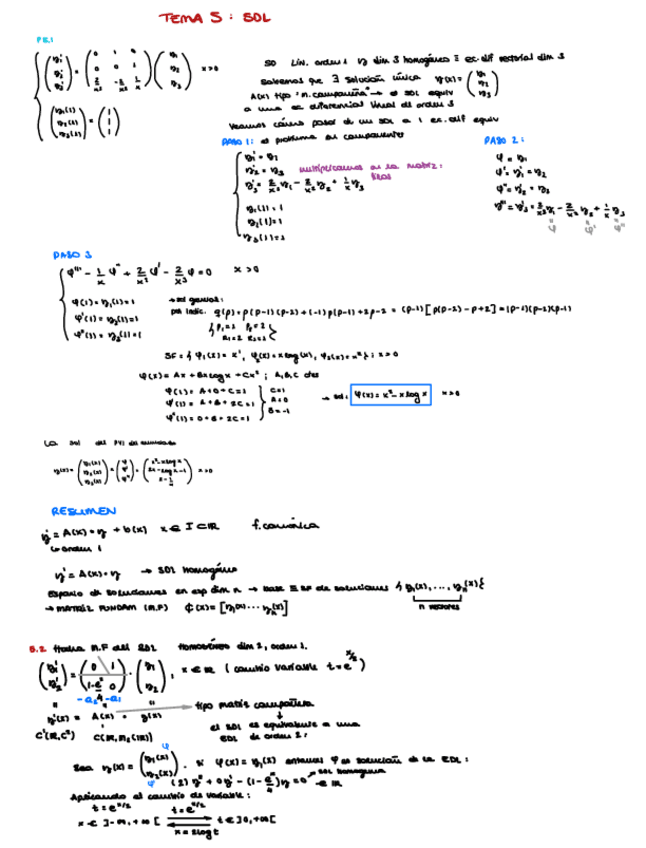 TEMA 5: SDL
P5.1
(y₁' y₂' y₃') = (0 1 0; 0 0 1; 2/x³ -2/x² 1/x) (y₁ y₂ y₃) x>0
(y₁(1) y₂(1) y₃(1)) = (1 1 1)
SD Lin. orden 1 y dim 3 homogéneo ≡ ec. dif vectorial dim 3
Sabemos que ∃ solución única y(x) = (y₁ y₂ y₃)
A(x) tipo "m. compañera" → el SDL equiv
a una ec diferencial lineal de orden 3
Veamos cómo pasar de un SDL a 1 ec. dif equiv
PASO 1: el problema en componentes
y₁' = y₂
y₂' = y₃
y₃' = 2/x³ y₁ - 2/x² y₂ + 1/x y₃
multiplicamos en la matriz: filas
y₁(1) = 1
y₂(1) = 1
y₃(1) = 1
PASO 2:
φ = y₁
φ' = y₁' = y₂
φ'' = y₂' = y₃
φ''' = y₃' = 2/x³ y₁ - 2/x² y₂ + 1/x y₃
φ φ' φ''
PASO 3
φ''' - 1/x φ'' + 2/x² φ' - 2/x³ φ = 0 x>0
φ(1) = y₁(1) = 1
φ'(1) = y₂(1) = 1
φ''(1) = y₃(1) = 1
→ sol general:
pol indic. q(p) = p(p-1)(p-2) + (-1)p(p-1) + 2p - 2 = (p-1)[p(p-2) - p + 2] = (p-1)(p-2)(p-1)
SF = { φ₁(x) = x, φ₂(x) = x log(x), φ₃(x) = x² } ; x>0
φ(x) = Ax + Bx log x + Cx² ; A, B, C ctes
φ(1) = A + 0 + C = 1
φ'(1) = A + B + 2C = 1
φ''(1) = 0 + B + 2C = 1
C = 1
A = 0
B = -1
→ sol: φ(x) = x² - x log x x>0
La sol del PVI
y(x) = (y₁(x) y₂(x) y₃(x)) = (φ φ' φ'') = (x² - x log x; 2x - log x - 1; 2 - 1/x) x>0
RESUMEN
y' = A(x)·y + b(x) x ∈ I ⊂ IR f. canónica
↳ orden 1
y' = A(x)·y → SDL homogéneo
Espacio de soluciones en esp dim n → base ≡ SF de soluciones { y₁(x), ..., yₙ(x) }
n vectores
→ MATRIZ FUNDAM (M.F) ϕ(x) = [y₁(x) ... yₙ(x)]
5.2 M.F del SDL homogéneo dim 2, orden 1.
(y₁' y₂') = (0 1; 1-eˣ/4 0) · (y₁ y₂), x ∈ IR (cambio variable t = e^(x/2))
-a₂ -a₁
y'(x) = A(x) · y(x)
→ tipo matriz compañera
↓
el SDL es equivalente a una
EDL de orden 2:
Sea y(x) = (y₁(x) y₂(x)). Si φ(x) = y₁(x) entonces φ es solución de la EDL:
(2) y'' + 0y' - (1-eˣ/4)y = 0 → EDL homogénea
x ∈ IR
Aplicando el cambio de variable:
t = e^(x/2)
x ∈ ]-∞, +∞[ t = e^(x/2) ⇄ x = 2 log t t ∈ ]0, +∞[